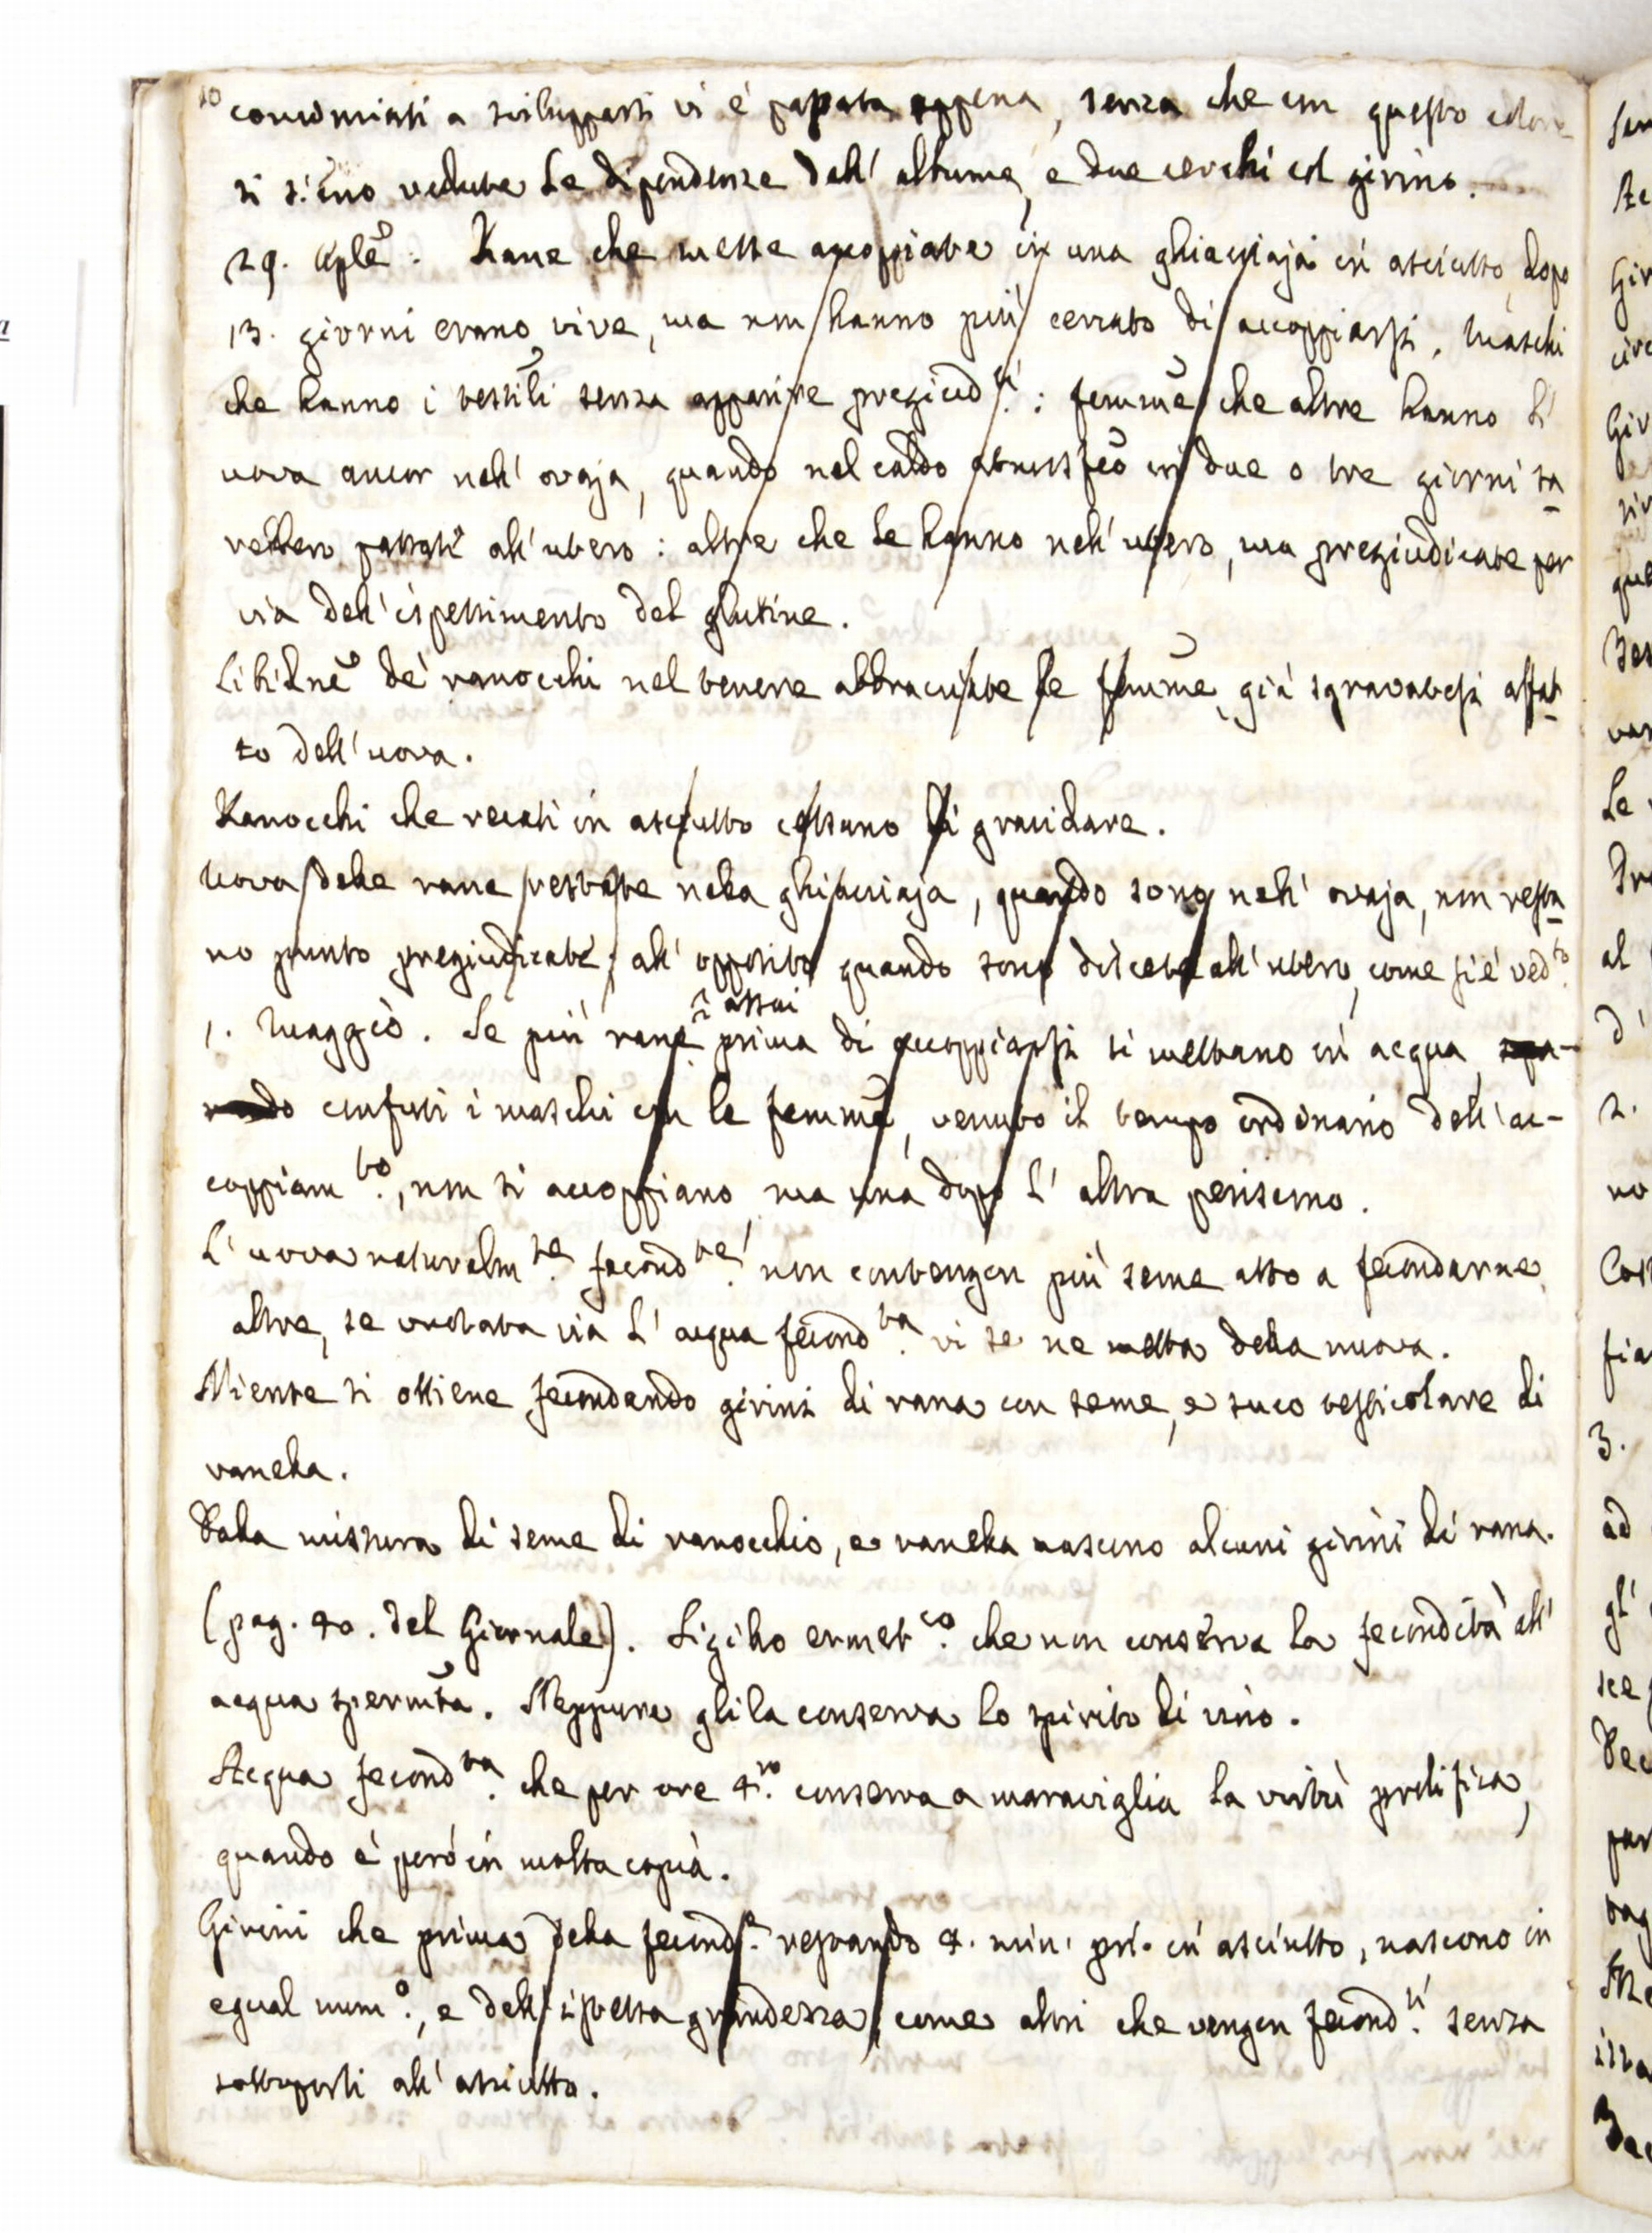 10
cominciati a svilupparsi vi è passata appena, senza che con questo colore
si sieno vedute le dipendenze dell' albume, e due cerchi col girino.
29. Aple. Rane che messe accoppiate in una ghiacciaja in asciutto, dopo
13. giorni erano vive, ma non hanno più cercato di accoppiarsi. Maschi
che hanno i testili senza apparire pregiudti.: femme che altre hanno l'
uova ancor nell' ovaja, quando nel caldo atmossfco in due o tre giorni sa
rebbero passate all' utero: altre che le hanno nell' utero, ma pregiudicate per
via dell' ispessimento del glutine.
Libidne de' ranocchi nel tenere abbracciate le femme, già sgravatesi affat
to dell' uova.
Ranocchi che recati in asciutto cessano di gracidare.
Uova delle rane restate nella ghiacciaja, quando sono nell' ovaja, non resta
no punto pregiudicate; all' opposito quando sono discese all' utero, come si è vedto.
1. Maggio. Se più rane assai prima di accoppiarsi si mettano in acqua,
confusi i maschi con le femme, venuto il tempo ordinario dell' ac-
coppiamto., non si accoppiano, ma una dopo l' altra periscono.
L' uova naturalmte. fecondte. non contengon più seme atto a fecondarne
altre, se vuotata via l' acqua fecondta. vi se ne metta della nuova.
Niente si ottiene fecondando girini di rana con seme, e suco testicolare di
ranella.
Dalla mistura di seme di ranocchio, e ranella nascono alcuni girini di rana.
(pag. 40. del Giornale). Sigillo ermetco. che non conserva la fecondità all'
acqua spermta. Neppure glila conserva lo spirito di vino.
Acqua fecondta. che per ore 4.ro conserva a maraviglia la virtù prolifica,
quando è però in molta copia.
Girini che prima della fecondne. restando 4. min. pri. in asciutto, nascono in
egual numo., e dell' istessa grandezza, come altri che vengon fecondti. senza
sottoporli all' asciutto.